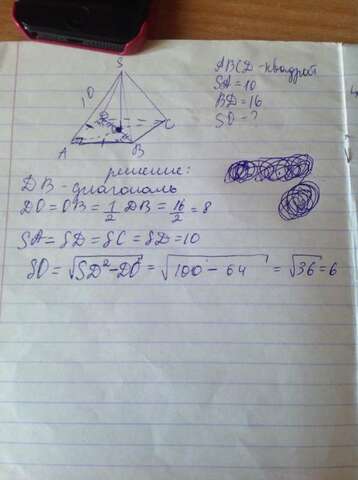 S
10
D
C
A
B
ABCD - квадрат
SA = 10
BD = 16
SO - ?
решение:
DB - диагональ
DO = OB = 1/2 DB = 16/2 = 8
SA = SD = SC = SD = 10
SO = √SD² - DO² = √100 - 64 = √36 = 6